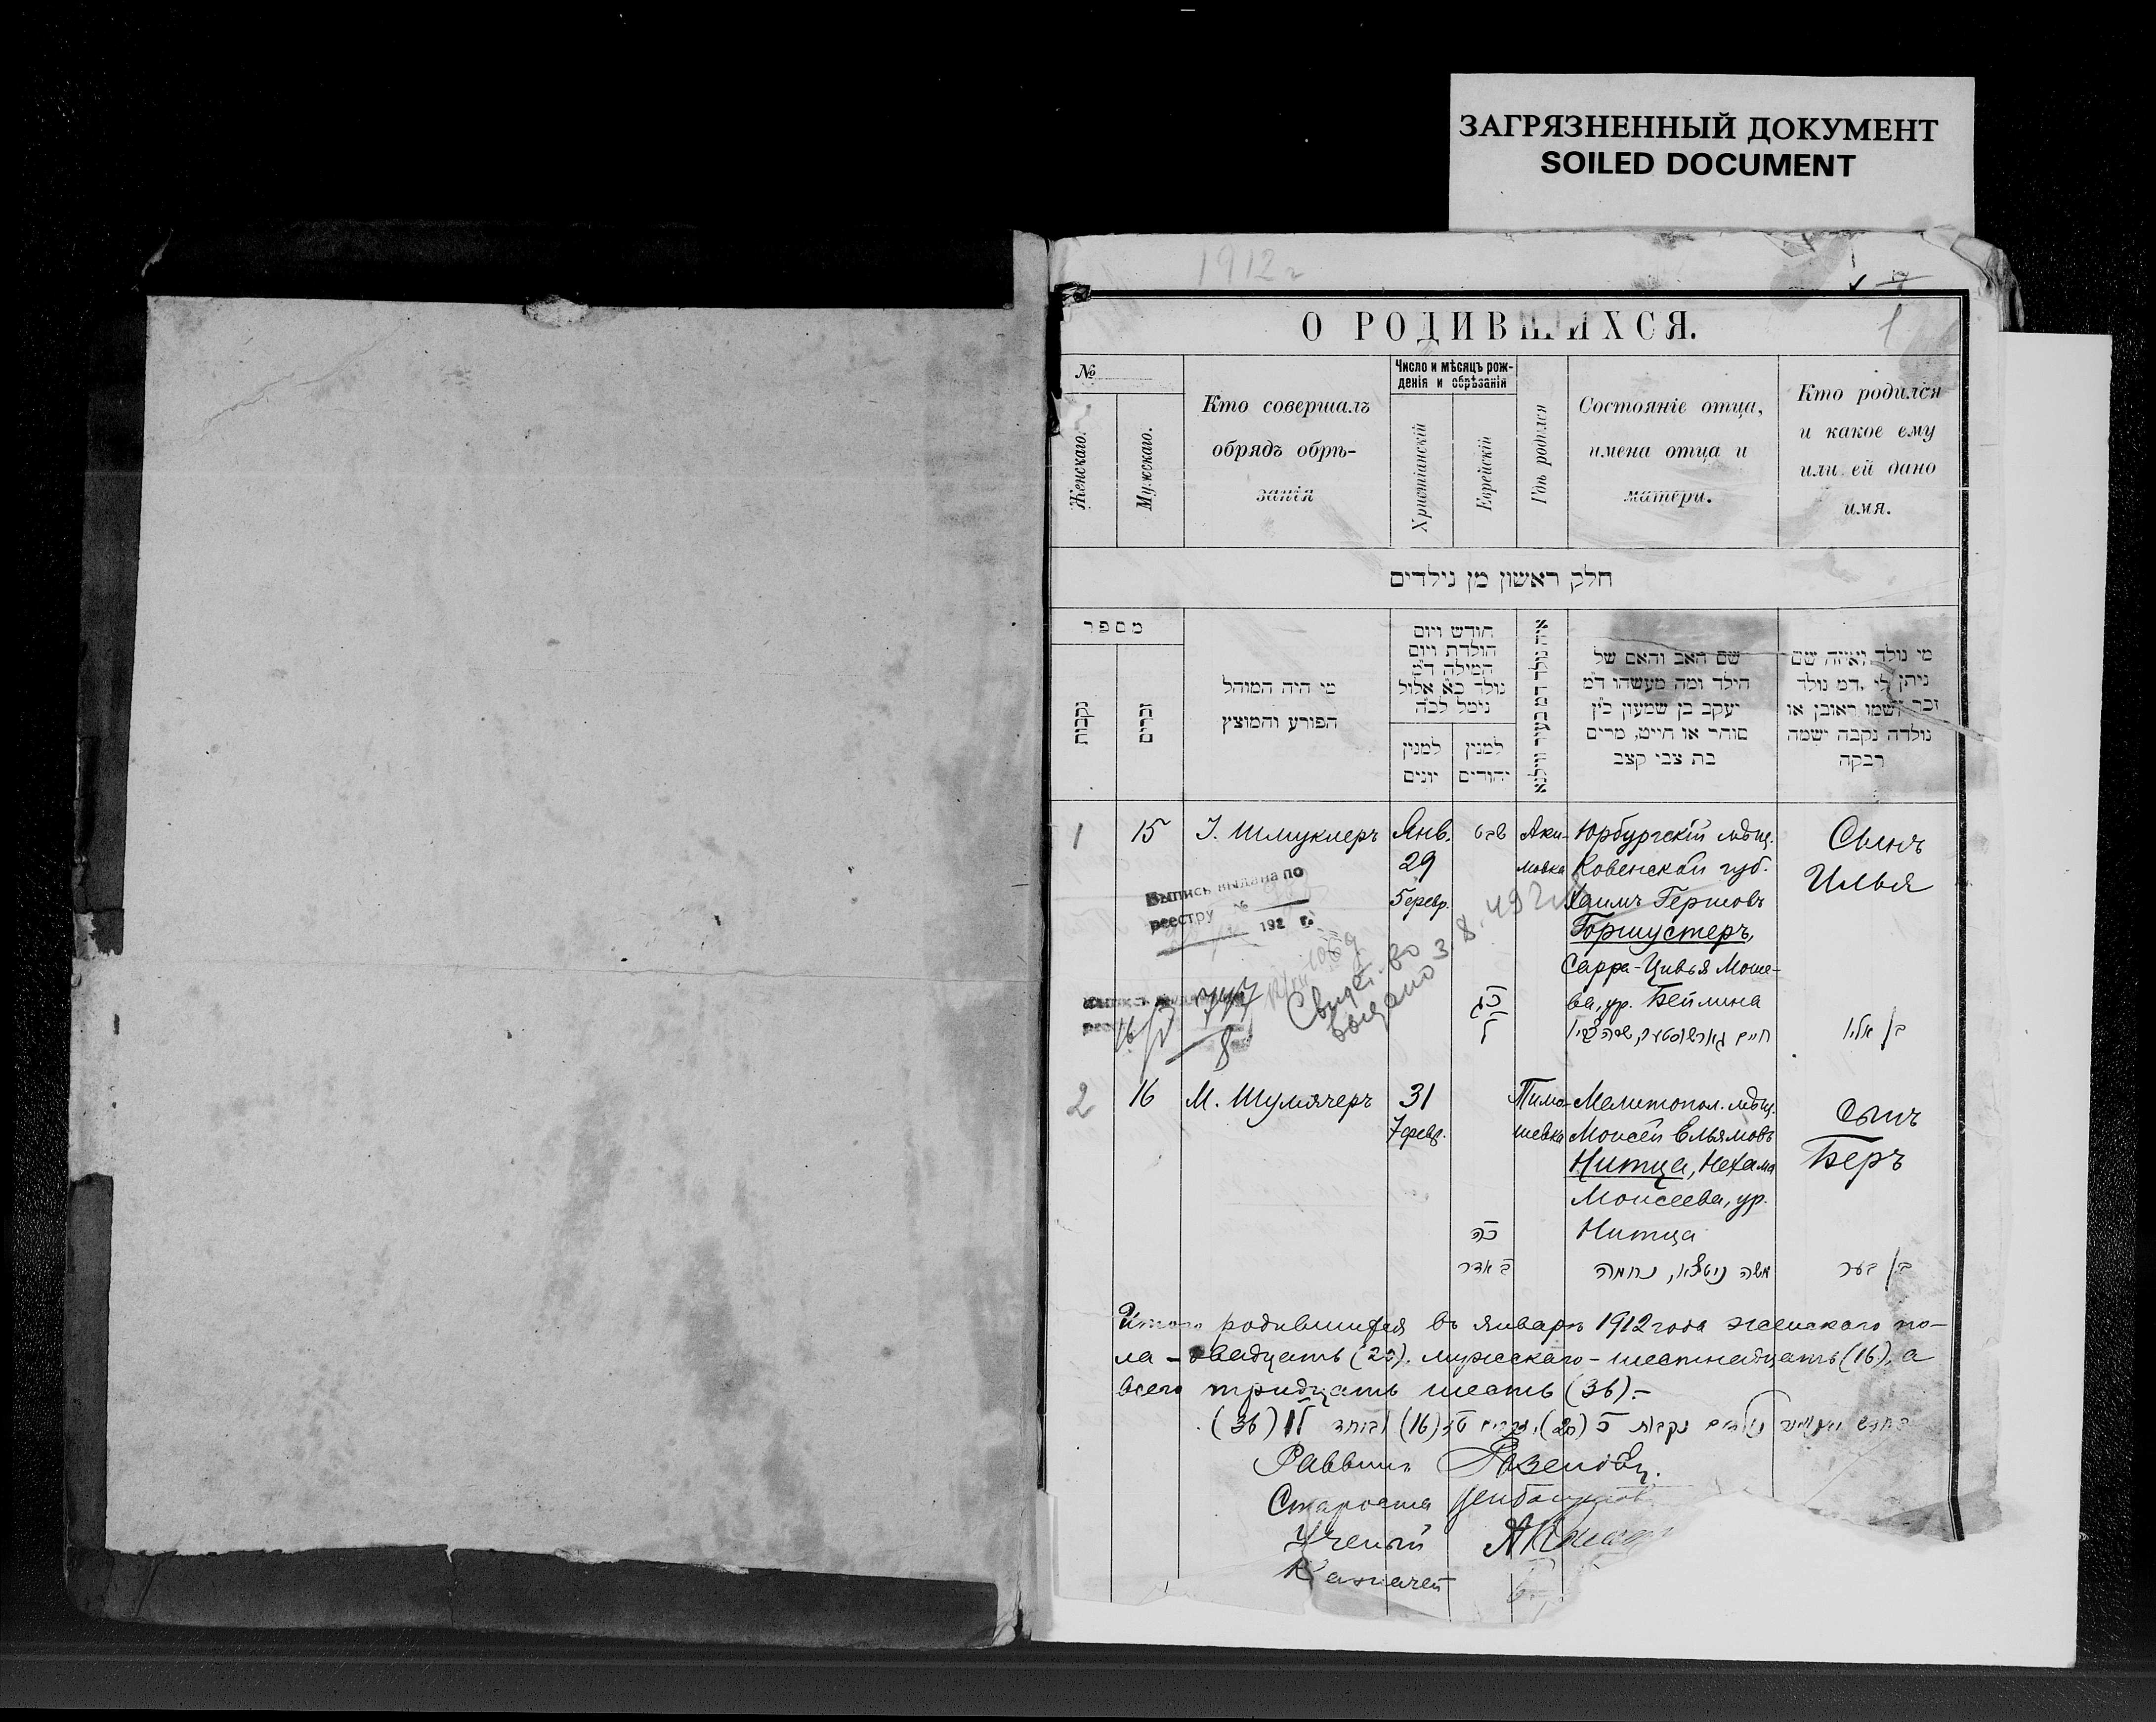 ЗАГРЯЗНЕННЫЙ ДОКУМЕНТ
SOILED DOCUMENT
1912 г
1
О РОДИВШИХСЯ.
№
Женскаго.
Мужскаго.
Кто совершалъ
обрядъ обрѣ-
занія
Число и мѣсяцъ рож-
денія и обрѣзанія
Христіанскій
Еврейскій
Гдѣ родился
Состояніе отца,
имена отца и
матери.
Кто родился
и какое ему
или ей дано
имя.
חלק ראשון מן נילדים
מספר
נקבות
זכרים
מי היה המוהל
הפורע והמוצץ
חודש ויום
הולדת ויום
המילה ד״מ
נולד כ״א אלול
נימל לכ״ה
למנין
יונים
למנין
יהודים
איה נולד דמ בעיר ווילנא
שם האב והאם של
הילד ומה מעשהו ד״מ
יעקב בן שמעון כ״ץ
סוהר או חייט, מרים
בת צבי קצב
מי נולד ואיזה שם
ניתן לו .דמ נולד
זכר ושמו ראובן או
נולדה נקבה ושמה
רבקה
1
15
І. Шмуклеръ
Янв.
29
5 февр.
שבט
כג
ל
Аки-
мовка
Юрбургскій мѣщ.
Ковенской губ.
Хаимъ Гершовъ
Горшустеръ,
Сарра-Цивья Моше-
ва, ур. Бейлина
Сынъ
Илья
בן אליו
Выпись выдана по
реестру №
192 г.
Свидет-во
выдано 3.8.49
2
16
М. Шумячеръ
31
7 февр.
כה
ב אדר
Тимо-
шевка
Мелитопол. мѣщ.
Моисей Эльямовъ
Нитца, Нехама
Моисеева, ур.
Нитца
משה ניטצא, נחמה
Сынъ
Беръ
בן בער
Итого родившихся въ январѣ 1912 года женскаго по-
ла - двадцать (20). мужескаго - шестнадцать (16), а
всего тридцать шесть (36).-
נולדים נקבות כ (20), זכרים טז (16) וביחד לו (36).
Раввинъ
Староста
Ученый
Казначей